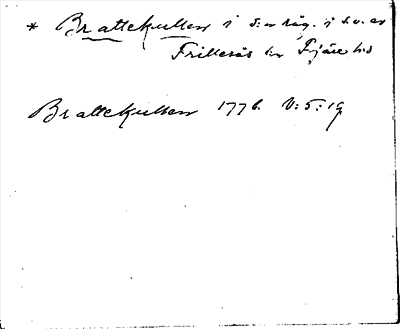 * Brattekullen i s:n råg. i s.v. av
Frillesås sn Fjäre hd
Brattekullen 1776. V:5:19